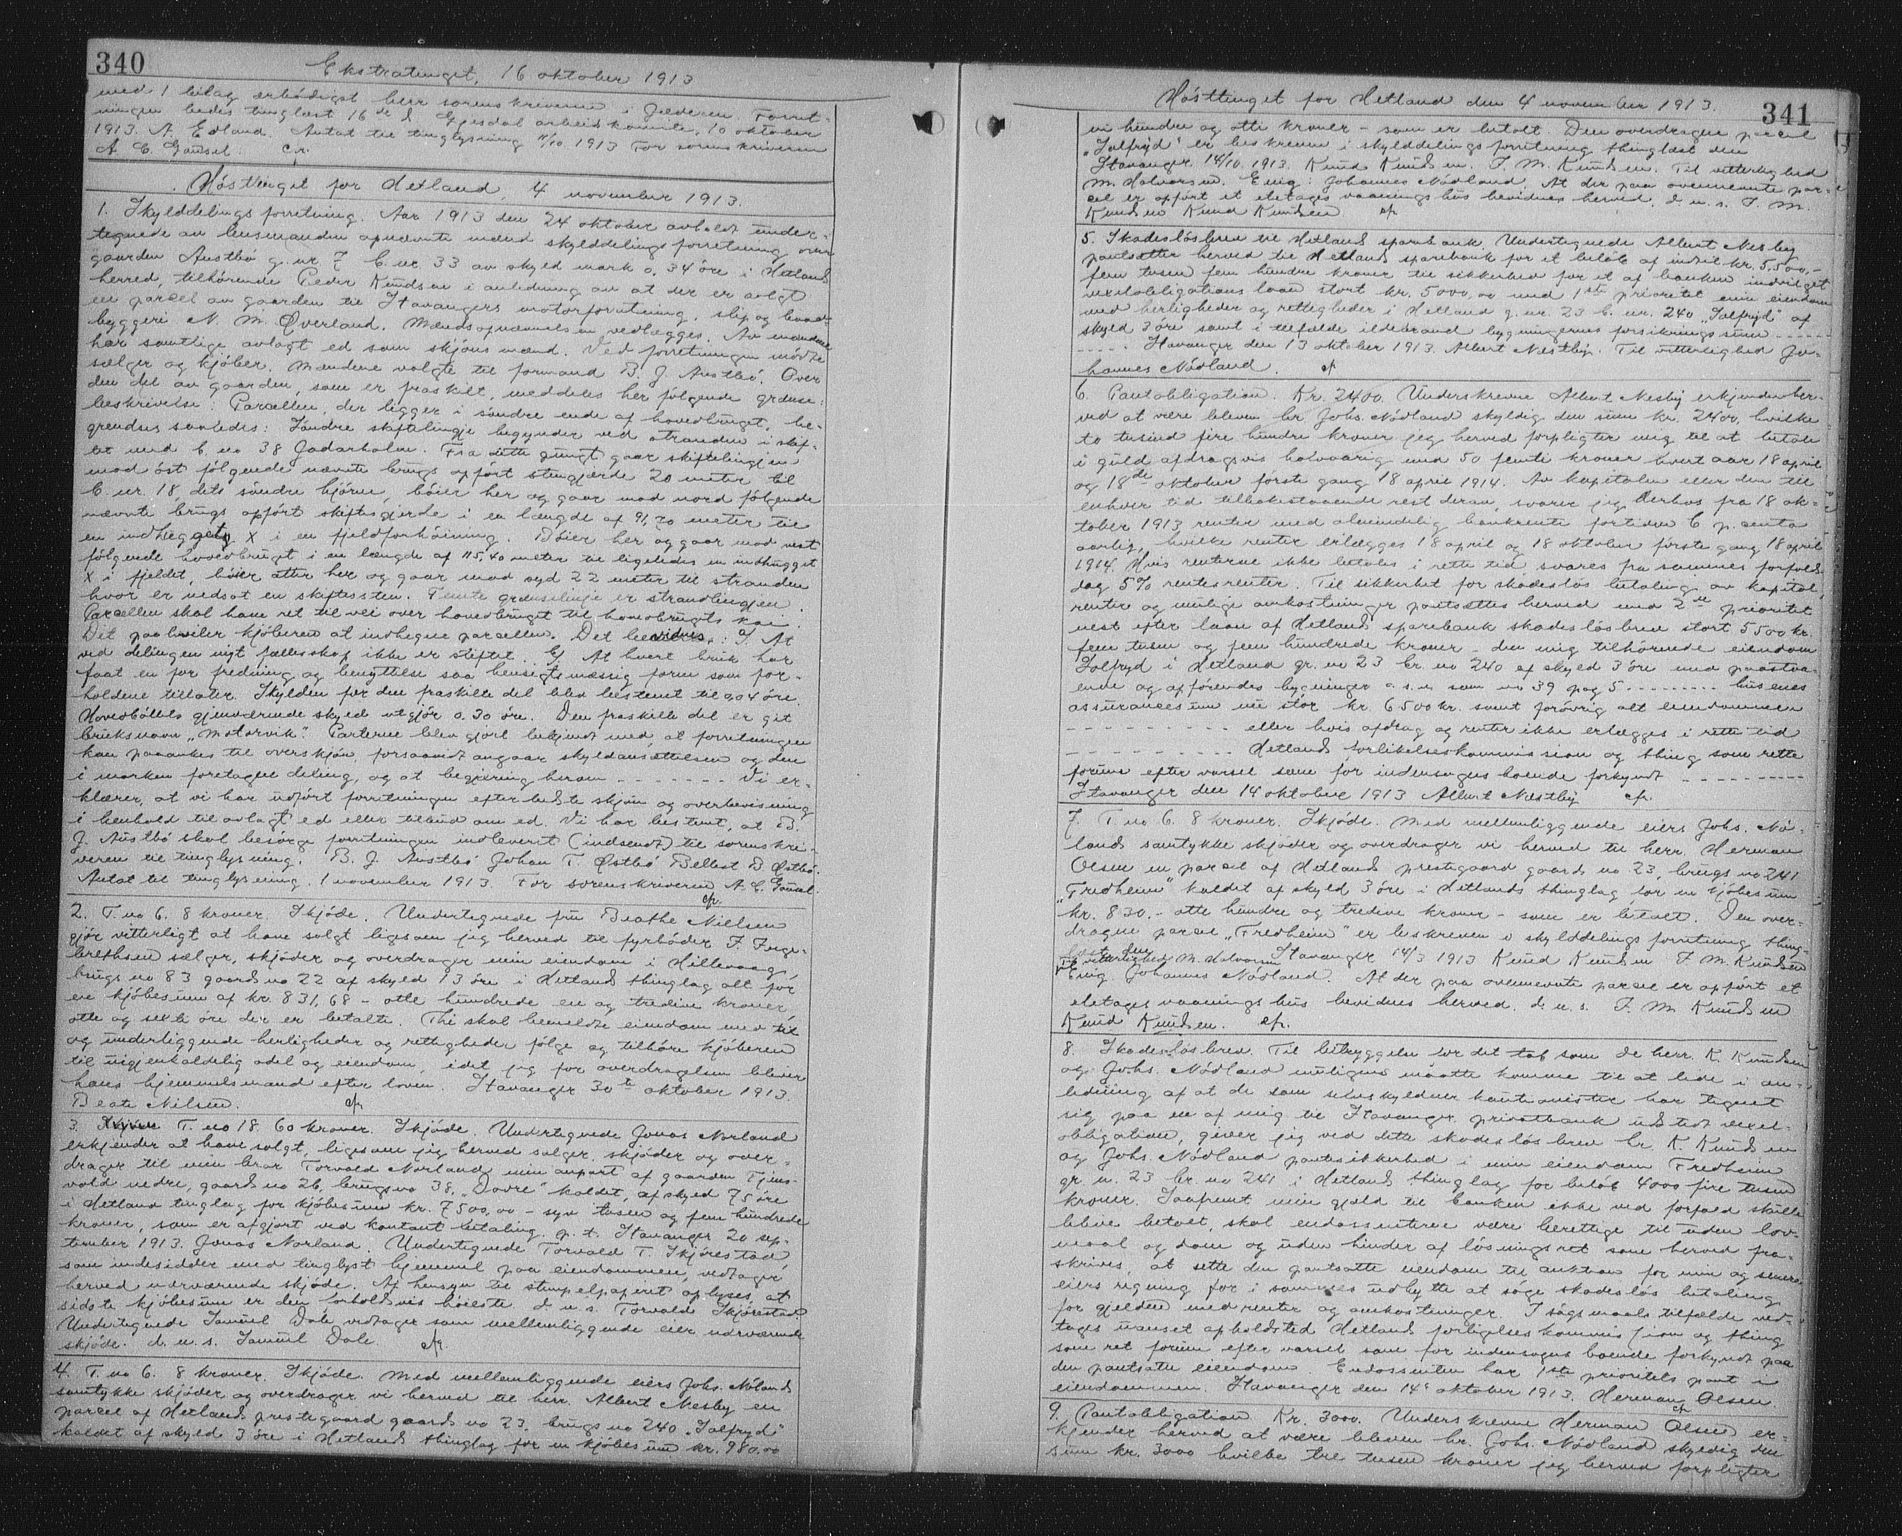 340
Ekstratinget, 16 oktober 1913
med 1 bilag ærbødigst herr sorenskriveren i Jæderen Forret-
ningen bedes tinglæst 16de d Gjesdal arbeiskomite, 10 oktober
1913. A. Edland. Antat til tinglysning 11/10 1913 For sorenskriveren
A. C. Gausel. cfr.
Høsttinget for Hetland, 4 november 1913.
1. Skylddelingsforretning. Aar 1913 den 24 oktober avholdt under-
tegnede av lensmanden opnævnte mænd skylddelingsforretning over
gaarden Austbø g. nr. 7 b. nr. 33 av skyld mark 0,34 øre i Hetland
herred, tilhørende Peder Knudsen i anledning av at der er solgt
en parcel av gaarden til Stavangers motorforretning, slip og baad-
byggeri N. M. Øverland. Mændsopnævnelsen vedlægges. Av mændene
har samtlige avlagt ed som skjønsmænd. Ved forretningen mødte
sælger og kjøber. Mændene valgte til formand B. J. Austbø. Over
den del av gaarden, som er fraskilt, meddeles her følgende grænse-
beskrivelse: Parcellen, der ligger i søndre ende af hovedbruget, be-
grendses saaledes: Søndre skiftelinje begynder ved stranden i skif-
tet med b. no 38 Jadarholm. Fra dette punkt gaar skiftelinjen
mod øst følgende nævnte brugs opført stengjærde 20 meter til
b. nr. 18, dets søndre hjørne, bøier her og gaar mod nord følgende
nævnte brugs opført skiftegjerde i en længde af 91,70 meter til
en indhugget X i en fjeldforhøining. Bøier her og gaar mod vest
følgende hovedbruget i en længde af 115,40 meter til ligeledes en indhugget
X i fjeldet, bøier atter her og gaar mod syd 22 meter til stranden
hvor er nedsat en skiftessten. Femte grænselinje er strandlinjen.
Parcellen skal have ret til vei over hovedbruget til hovedbrugets kai.
Det paahviler kjøberen at indhegne parcellen. Det bevidnes: I. At
ved delingen nyt fællesskab ikke er stiftet. II At hvert bruk har
faat en for fredning og benyttelse saa hensigtsmæssig form som for-
holdene tillater. Skylden for den fraskilte del blev bestemt til 0,04 øre.
Hovedbøllets gjenværende skyld utgjør 0.30 øre. Den fraskilte del er git
bruksnavn „Motorvik". Parterne blev gjort bekjendt med, at forretningen
kan paaankes til overskjøn, forsaavidt angaar skyldansættelsen og den
i marken foretagne deling, og at begjæring herom - - - - - - - Vi er-
klærer, at vi har utført forretningen efter bedste skjøn og overbevisning
i henhold til avlagt ed eller tilbud om ed. Vi har bestemt, at B.
J. Austbø skal besørge forretningen indleveret (indsendt) til sorenskri-
veren til tinglysning. B. J. Austbø Johan T. Østbø Bellest D Østbø.
Antat til tinglysning. 1 november 1913. For sorenskriveren A. C. Gausel.
cfr.
2. T. no 6. 8 kroner. Skjøde. Undertegnede fru Beathe Nielsen
gjør vitterligt at have solgt ligesom jeg herved til fyrbøder F. Inge-
brethsen sælger, skjøder og overdrager min eiendom i Hillevaag,
brugs no 83 gaards no 22 af skyld 13 øre i Hetland thinglag alt for
en kjøbesum af kr. 831,68 – otte hundrede en og tredive kroner,
otte og seksti øre der er betalte. Thi skal bemeldte eiendom med til
og underliggende herligheder og rettigheder følge og tilhøre kjøberen
til uigjenkaldelig odel og eiendom, idet jeg for overdragelsen bliver
hans hjemmelsmand efter loven. Stavanger 30te oktober 1913.
Beate Nilsen. cfr
3. T. no 18. 60 kroner. Skjøde. Undertegnede Jonas Norland
erkjender at have solgt, ligesom jeg herved sælger, skjøder og over-
drager til min bror Torvald Norland min anpart af gaarden Tjens-
vold nedre, gaards no 26, brugs no 38. „Dovre" kaldet, af skyld 75 øre
i Hetland tinglag for kjøbesum kr. 7500,00 – syv tusen og fem hundrede
kroner, som er afgjort ved kontant betaling. p. t. Stavanger 20 sep-
tember 1913. Jonas Norland. Undertegnede Torvald T. Skjørestad
som indesidder med tinglyst hjemmel paa eiendommen, vedtager
herved nærværende skjøde. Af hensyn til stempelpapiret oplyses, at
sidste kjøbesum er den forholdsvis høieste. d. u. s. Torvald Skjørestad.
Undertegnede Samuel Dale vedtager som mellemliggende eier nærværende
skjøde. d. u. s. Samuel Dale. cfr.
4. T. no 6. 8 kroner. Skjøde. Med mellemliggende eiers Johs. Nølands
samtykke skjøder og overdrager vi herved til herr Albert Nesby en
parcel af Hetlands prestegaard gaards no 23, brugs no 240 „Solfryd"
kaldet af skyld 3 øre i Hetlands thinglag for en kjøbesum kr. 980,00
341
Høsttinget for Hetland den 4 november 1913.
ni hundre og otti kroner – som er betalt. Den overdragne parcel
„Solfryd" er beskreven i skylddelingsforretning thinglæst den
Stavanger 14/10 1913. Knud Knudsen. F. M. Knudsen. Til vitterlighed
M. Halvorsen. Enig: Johannes Nødland. At der paa ovennævnte par-
cel er opført et etages vaaningshus bevidnes herved. d. u. s. F. M.
Knudsen Knud Knudsen cfr
5. Skadesløsbrev til Hetland sparebank. Undertegnede Albert Nesby
pantsætter herved til Hetland sparebank for et beløb af indtil kr. 5,500,-
fem tusen fem hundre kroner til sikkerhed for et af banken indvilget
vexelobligationslaan stort kr. 5000,00 med 1ste prioritet min eiendom
med herligheder og rettigheder i Hetland g. nr. 23 b. nr. 240 „Solfryd" af
skyld 3 øre samt i tilfælde ildebrand bygningernes forsikringssum - - - - -
- - - - - Stavanger den 13 oktober 1913. Albert Nestby. Til vitterlighed Jo-
hannes Nødland. cf
6. Pantobligation. Kr. 2400. Underskrevne Albert Nesby erkjender her-
ved at være bleven hr. Johs. Nødland skyldig den sum kr. 2400, hvilke
to tusind fire hundre kroner jeg herved forpligter mig til at betale
i guld afdragsvis halvaarig med 50 femti kroner hvert aar 18 april
og 18de oktober første gang 18 april 1914. Av kapitalen eller den til
enhver tid tilbakestaaende rest deraf, svarer jeg derhos fra 18 ok-
tober 1913 renter med almindelig bankrente fortiden 6 p. cento
aarlig, hvilke renter erlægges 18 april og 18 oktober første gang 18 april
1914. Hvis renterne ikke betales i rette tid svares fra sammes forfalds-
dag 5% rentesrenter. Til sikkerhet for skadesløs betaling av kapital,
renter og mulige omkostninger pantsættes herved med 2den prioritet
nest efter laan af Hetland sparebank skadesløsbrev stort 5500 kr.
fem tusen og fem hundrede kroner – den mig tilhørende eiendom
Solfryd i Hetland gr. no 23 br. no 240 af skyld 3 øre med paastaa-
ende og opførendes bygninger o. s. v. som no 39 pag 5 - - - - - - - husenes
assurancesum nu stor kr. 6500 kr. samt forøvrig alt eiendommen
- - - - - - - - - - eller hvis afdrag og renter ikke erlægges i rette tid
- - - - - - - - - - Hetlands forlikelseskommission og thing som rette
forum efter varsel som for indensogns boende forkyndt - - - - - - - -
Stavanger den 14 oktober 1913 Albert Nestby cfr.
7. T. no 6. 8 kroner. Skjøde. Med mellemliggende eiers Johs. Nø-
lands samtykke skjøder og overdrager vi herved til herr Herman
Olsen en parcel af Hetlands prestegaard gaards no 23, brugs no 241
„Fredheim" kaldet af skyld 3 øre i Hetlands thinglag for en kjøbesum
kr. 830.- otte hundre og tredive kroner – som er betalt. Den over-
dragne parcel „Fredheim" er beskreven i skylddelingsforretning thing-
læst den Stavanger 14/3 1913 Knud Knudsen F. M. Knudsen
Til vitterlighed M. Halvorsen
Enig Johannes Nødland. At der paa ovennevnte parcel er opført et
etages vaaningshus bevidnes herved d. u. s. F. M. Knudsen
Knud Knudsen. cfr.
8. Skadesløsbrev. Til betryggelse for det tab som de herr. K. Knudsen
og Johs. Nødland muligens maatte komme til at lide i an-
ledning af at de som selvskyldner kautionister har tegnet
sig paa en af mig til Stavanger privatbank udstedt vexel-
obligation, giver jeg ved dette skadesløsbrev hr. K Knudsen
og Johs. Nødland pantesikkerhed i min eiendom Fredheim
gr. n. 23 br. no 241 i Hetland thinglag for beløb 4000 fire tusen
kroner. Saafremt min gjeld til banken ikke ved forfald skulle
blive betalt, skal endossenterne være berettige til uden lov-
maal og dom og uden hinder af løsningsret som herved fra-
skrives, at sette den pantsatte eiendom til auktion for min og senere
eiers regning for i sammes udbytte at søge skadesløs betaling
for gjelden med renter og omkostninger. I søgsmaals tilfælde ved-
tages uanset opholdsted Hetland forligelseskommission og thing
som ret forum efter varsel som for indensogns boende forkyndt paa
den pantsatte eiendom. Endossenten har 1ste prioritets pant i
eiendommen. Stavanger den 14de oktober 1913. Herman Olsen.
cfr
9. Pantobligation Kr. 3000. Underskrevne Herman Olsen er-
kjender herved at være bleven hr. Johs. Nødland skyldig den
sum kr. 3000 hvilke tre tusen kroner jeg herved forpligter